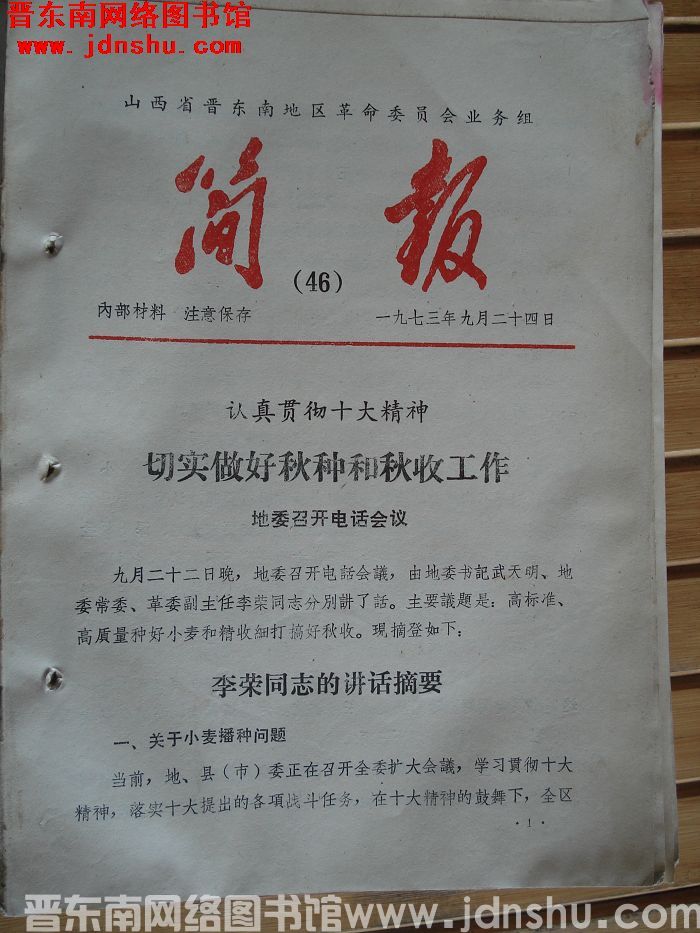 晋东南网络图书馆
www.jdnshu.com
山西省晋东南地区革命委员会业务组
简报
(46)
内部材料 注意保存 一九七三年九月二十四日
认真贯彻十大精神
切实做好秋种和秋收工作
地委召开电话会议
九月二十二日晚，地委召开电話会議，由地委书記武天明、地
委常委、革委副主任李荣同志分别讲了話。主要議題是：高标准、
高质量种好小麦和精收細打搞好秋收。現摘登如下：
李荣同志的讲话摘要
一、关于小麦播种问题
当前，地、县（市）委正在召开全委扩大会議，学习貫彻十大
精神，落实十大提出的各項战斗任务，在十大精神的鼓舞下，全区
· 1 ·
晋东南网络图书馆www.jdnshu.com